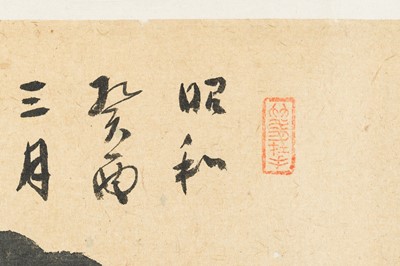 昭和
癸酉
三月